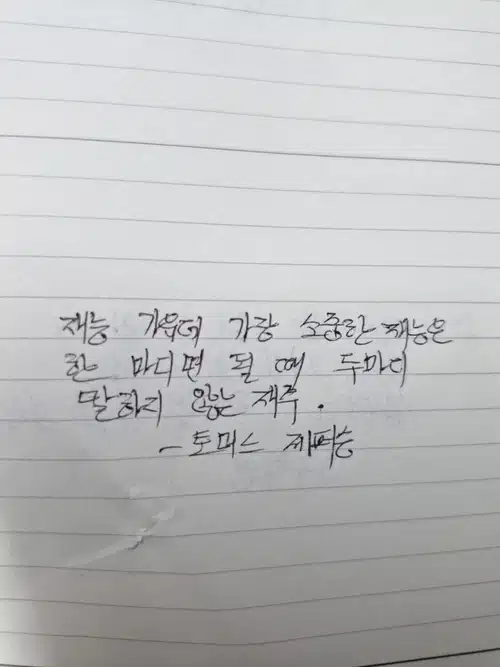 재능 가운데 가장 소중한 재능은
한 마디면 될 때 두마디
말하지 않는 재주.
- 토머스 제퍼슨